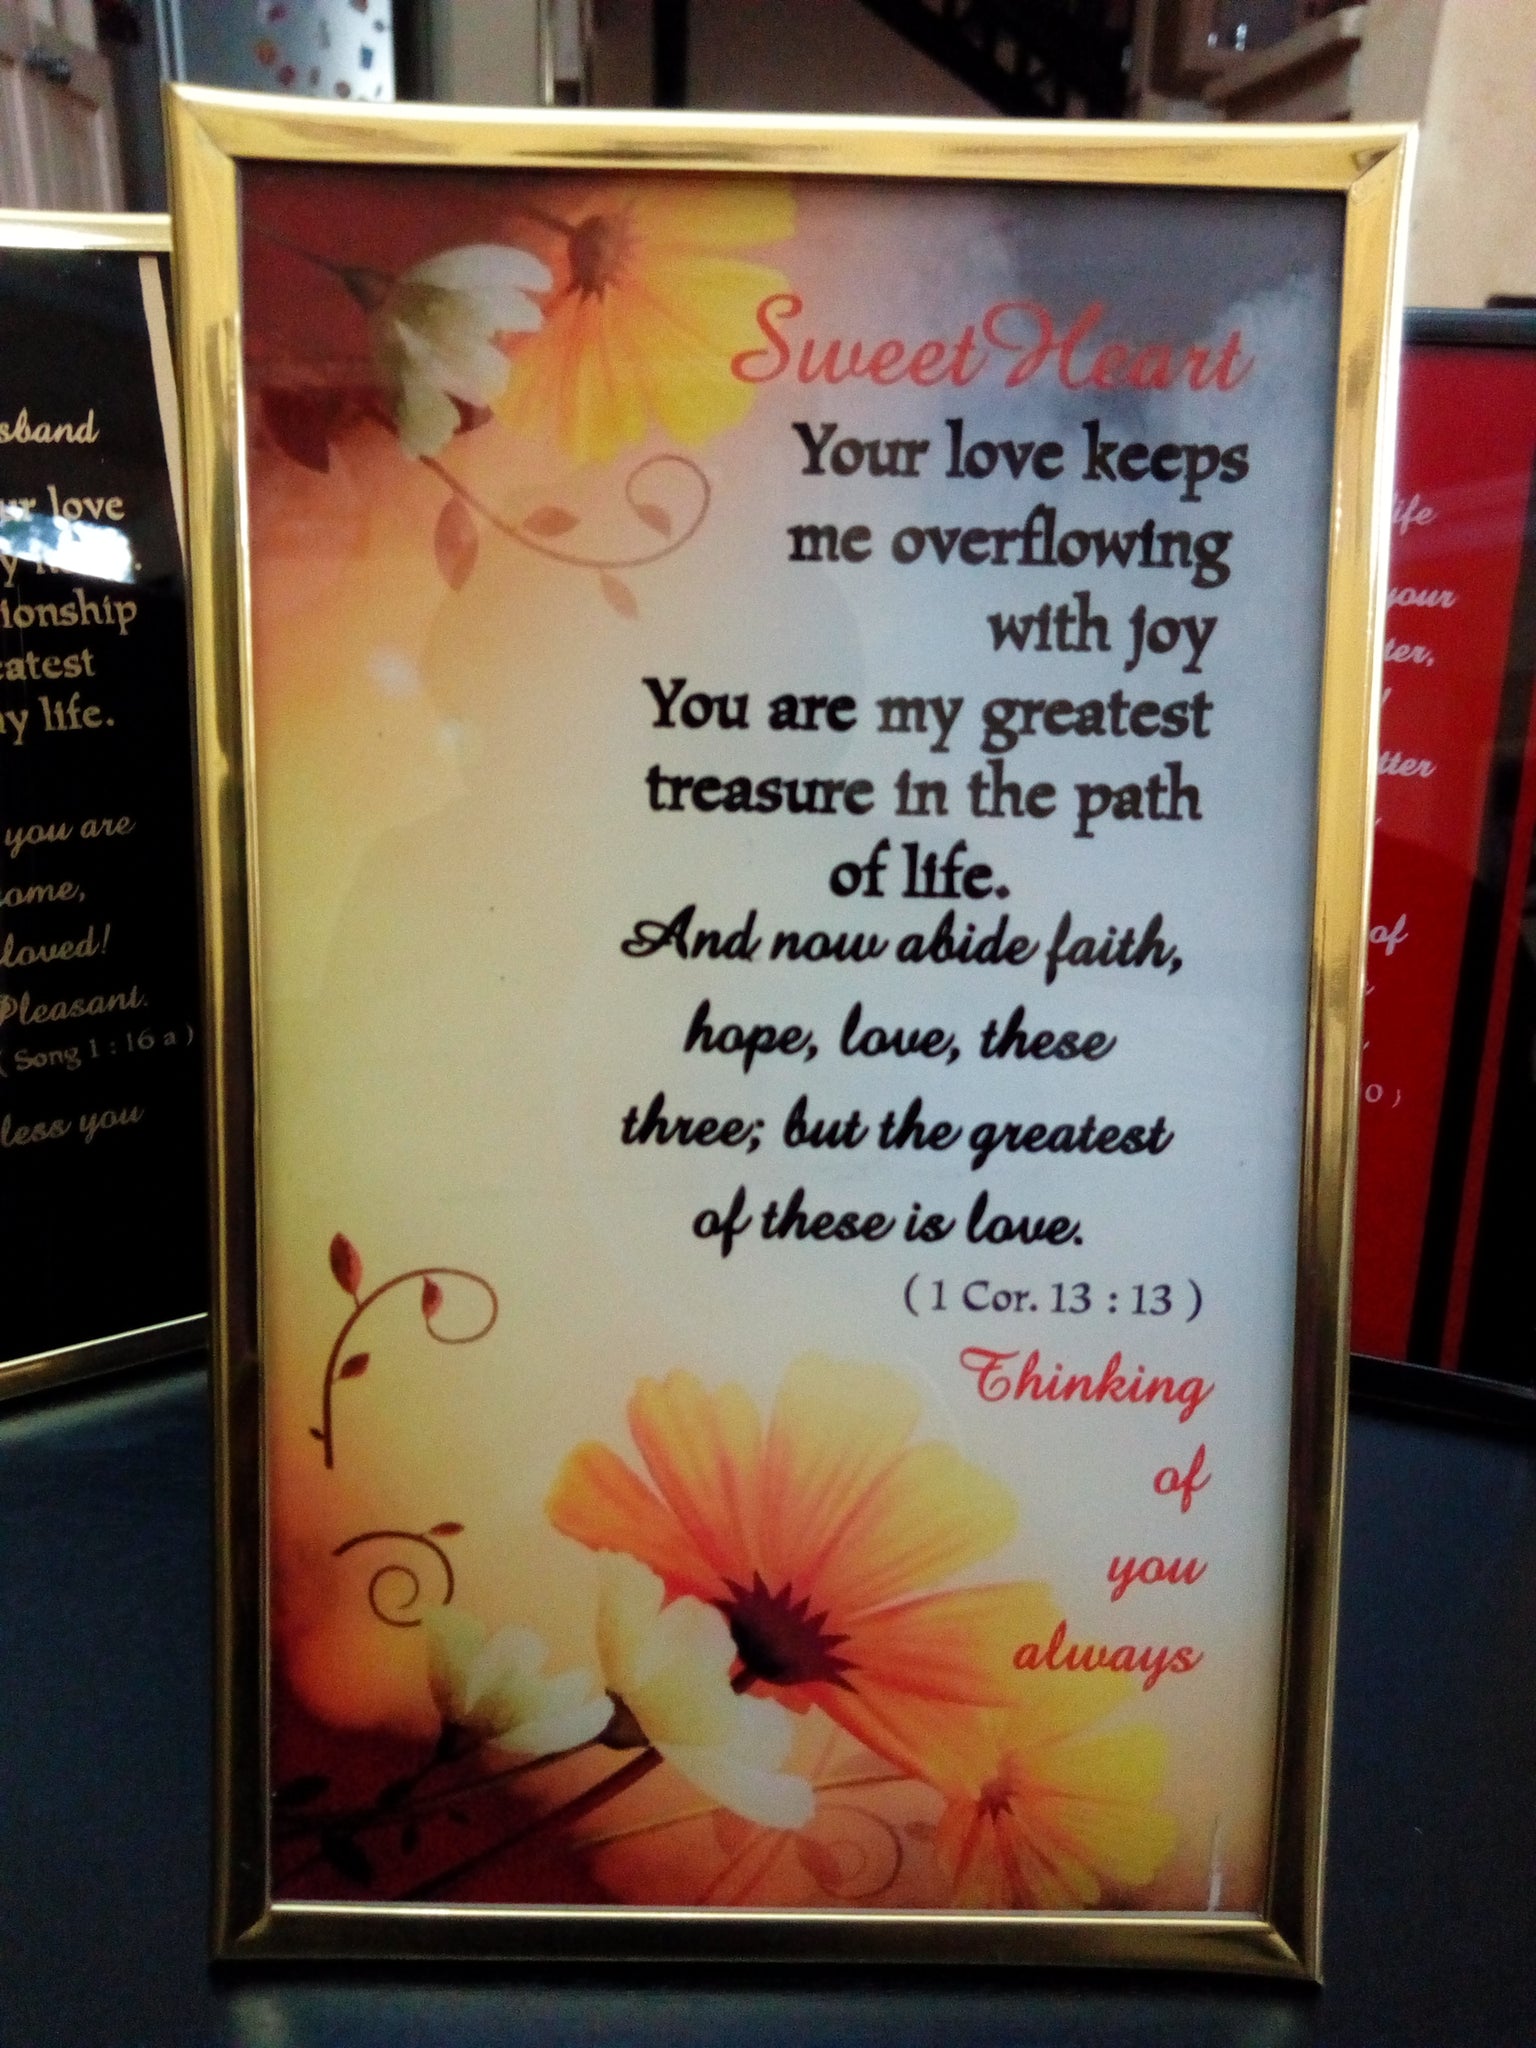 Sweet Heart
Your love keeps
me overflowing
with joy
You are my greatest
treasure in the path
of life.
And now abide faith,
hope, love, these
three; but the greatest
of these is love.
( 1 Cor. 13 : 13 )
Thinking
of
you
always
love
life.
you are
loved!
Pleasant.
( Song 1 : 16 a )
you
your
of